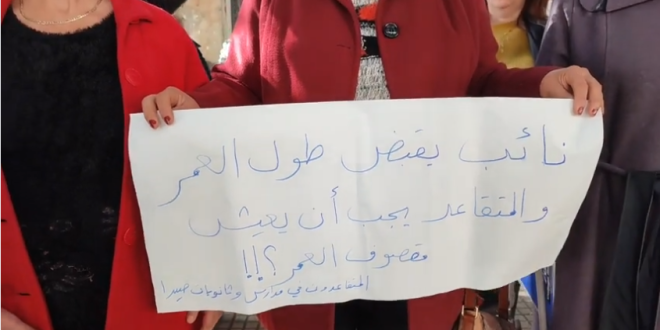 نائب يقبض طول العمر
والمتقاعد يجب أن يعيش
مقصوف العمر؟!!
المتقاعدون في مدارس وثانويات صيدا